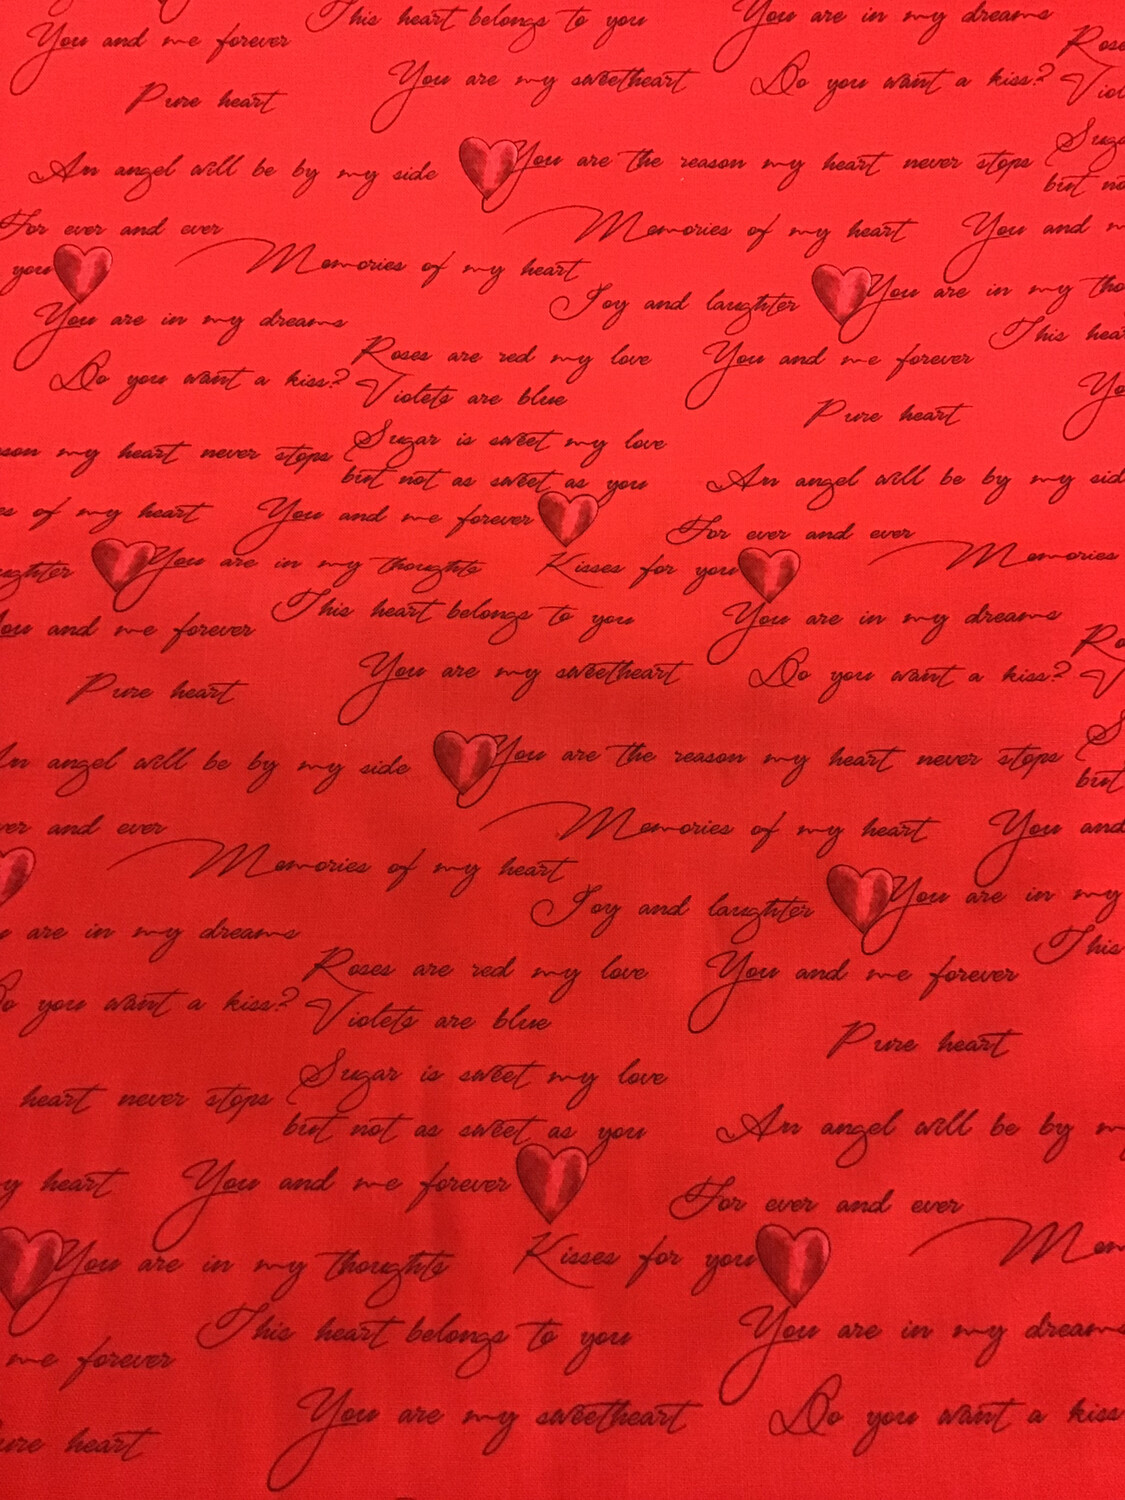 This heart belongs to you
You are in my dreams
You and me forever
Roses
You are my sweetheart
Do you want a kiss?
Pure heart
An angel will be by my side
You are the reason my heart never stops
but no
For ever and ever
Memories of my heart
You and
you
Memories of my heart
Joy and laughter
You are in my
You are in my dreams
This
Roses are red my love
You and me forever
Do you want a kiss?
Violets are blue
Pure heart
my heart never stops
Sugar is sweet my love
but not as sweet as you
An angel will be by my sid
of my heart
You and me forever
For ever and ever
Memories
You are in my thoughts
Kisses for you
This heart belongs to you
You are in my dreams
ou and me forever
You are my sweetheart
Do you want a kiss?
Pure heart
n angel will be by my side
You are the reason my heart never stops
but
ver and ever
Memories of my heart
You and
Memories of my heart
Joy and laughter
You are in my
are in my dreams
This
Roses are red my love
You and me forever
o you want a kiss?
Violets are blue
Pure heart
heart never stops
Sugar is sweet my love
but not as sweet as you
An angel will be by m
y heart
You and me forever
For ever and ever
Mem
You are in my thoughts
Kisses for you
This heart belongs to you
You are in my dreams
me forever
You are my sweetheart
Do you want a kiss
ure heart